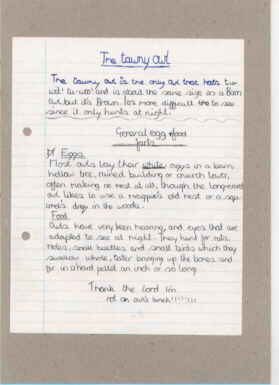 The tawny owl
The tawny owl is the only owl that hoots tu-
wit! tu-woo! and is about the same size as a Barn
owl but it's Brown. It's more difficult to see
since it only hunts at night.
General egg & food
facts
Eggs
Most owls lay their white eggs in a barn,
hollow tree, ruined building or church tower,
often making no nest at all, though the long-eared
owl likes to use a magpie's old nest or a squ-
in the woods.
Food
Owls have very keen hearing, and eyes that are
adapted to see at night. They hunt for rats,
voles, small beetles and small birds which they
swallow whole, later bringing up the bones and
fur in a hard pellet an inch or so long.
Thank the Lord I'm
not an owl's lunch!!!!!!